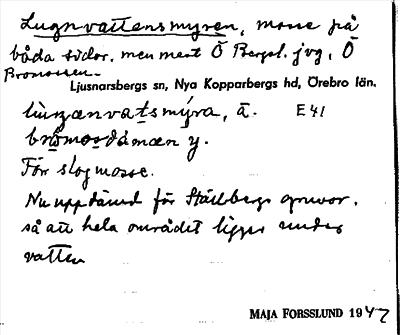 Lugnvattensmyren, mosse på
båda sidor. men mest Ö Bergsl. jvg, Ö
Bromossen.
Ljusnarsbergs sn, Nya Kopparbergs hd, Örebro län.
E41
brômosdâmæn y.
Förr slogmosse.
Nu uppdämd för Ställbergs gruvor.
så att hela området ligger under
vatten
MAJA FORSSLUND 1942